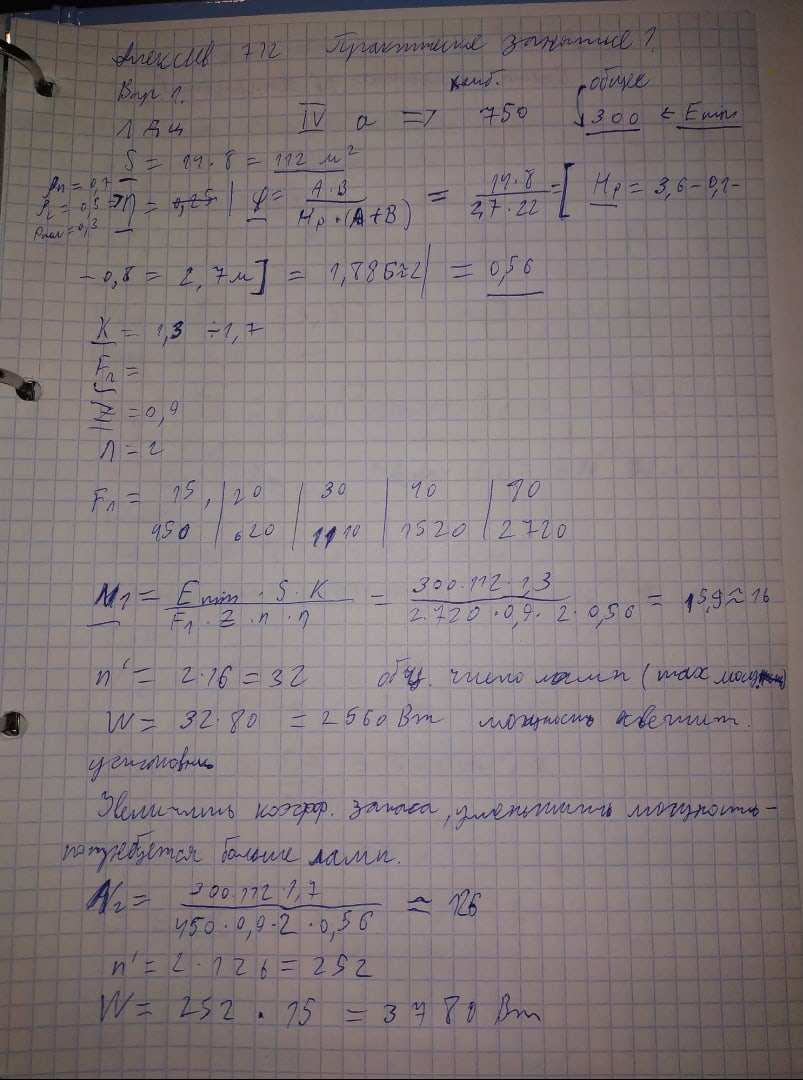 Алексеев 712 Практическое занятие?
Вар. 1.
ЛДЦ IV а => комб. 750 { общее 300 ← Emin
S = 14·8 = 112 м²
ρп = 0,7
ρс = 0,5 => η = 0,25 | φ = A·B / Hр·(A+B) = 14·8 / 2,7·22 = [ Hр = 3,6-0,1-
-0,8 = 2,7м] = 1,886≈2 | = 0,56
K = 1,3 ÷ 1,7
Fл =
Z = 0,9
n = 2
Fл = 15, | 20 | 30 | 40 | 80
450 | 620 | 1110 | 1520 | 2720
N1 = Emin · S · K / Fл · Z · n · η = 300·112·1,3 / 2720·0,9·2·0,56 = 15,9≈16
n' = 2·16 = 32 общ. число ламп (max мощн.)
W = 32·80 = 2560 Вт мощность осветит.
установки
Увеличить коэфф. запаса, уменьшить мощность -
потребуется больше ламп.
N2 = 300·112·1,7 / 450·0,9·2·0,56 ≈ 126
n' = 2·126 = 252
W = 252 · 15 = 3780 Вт